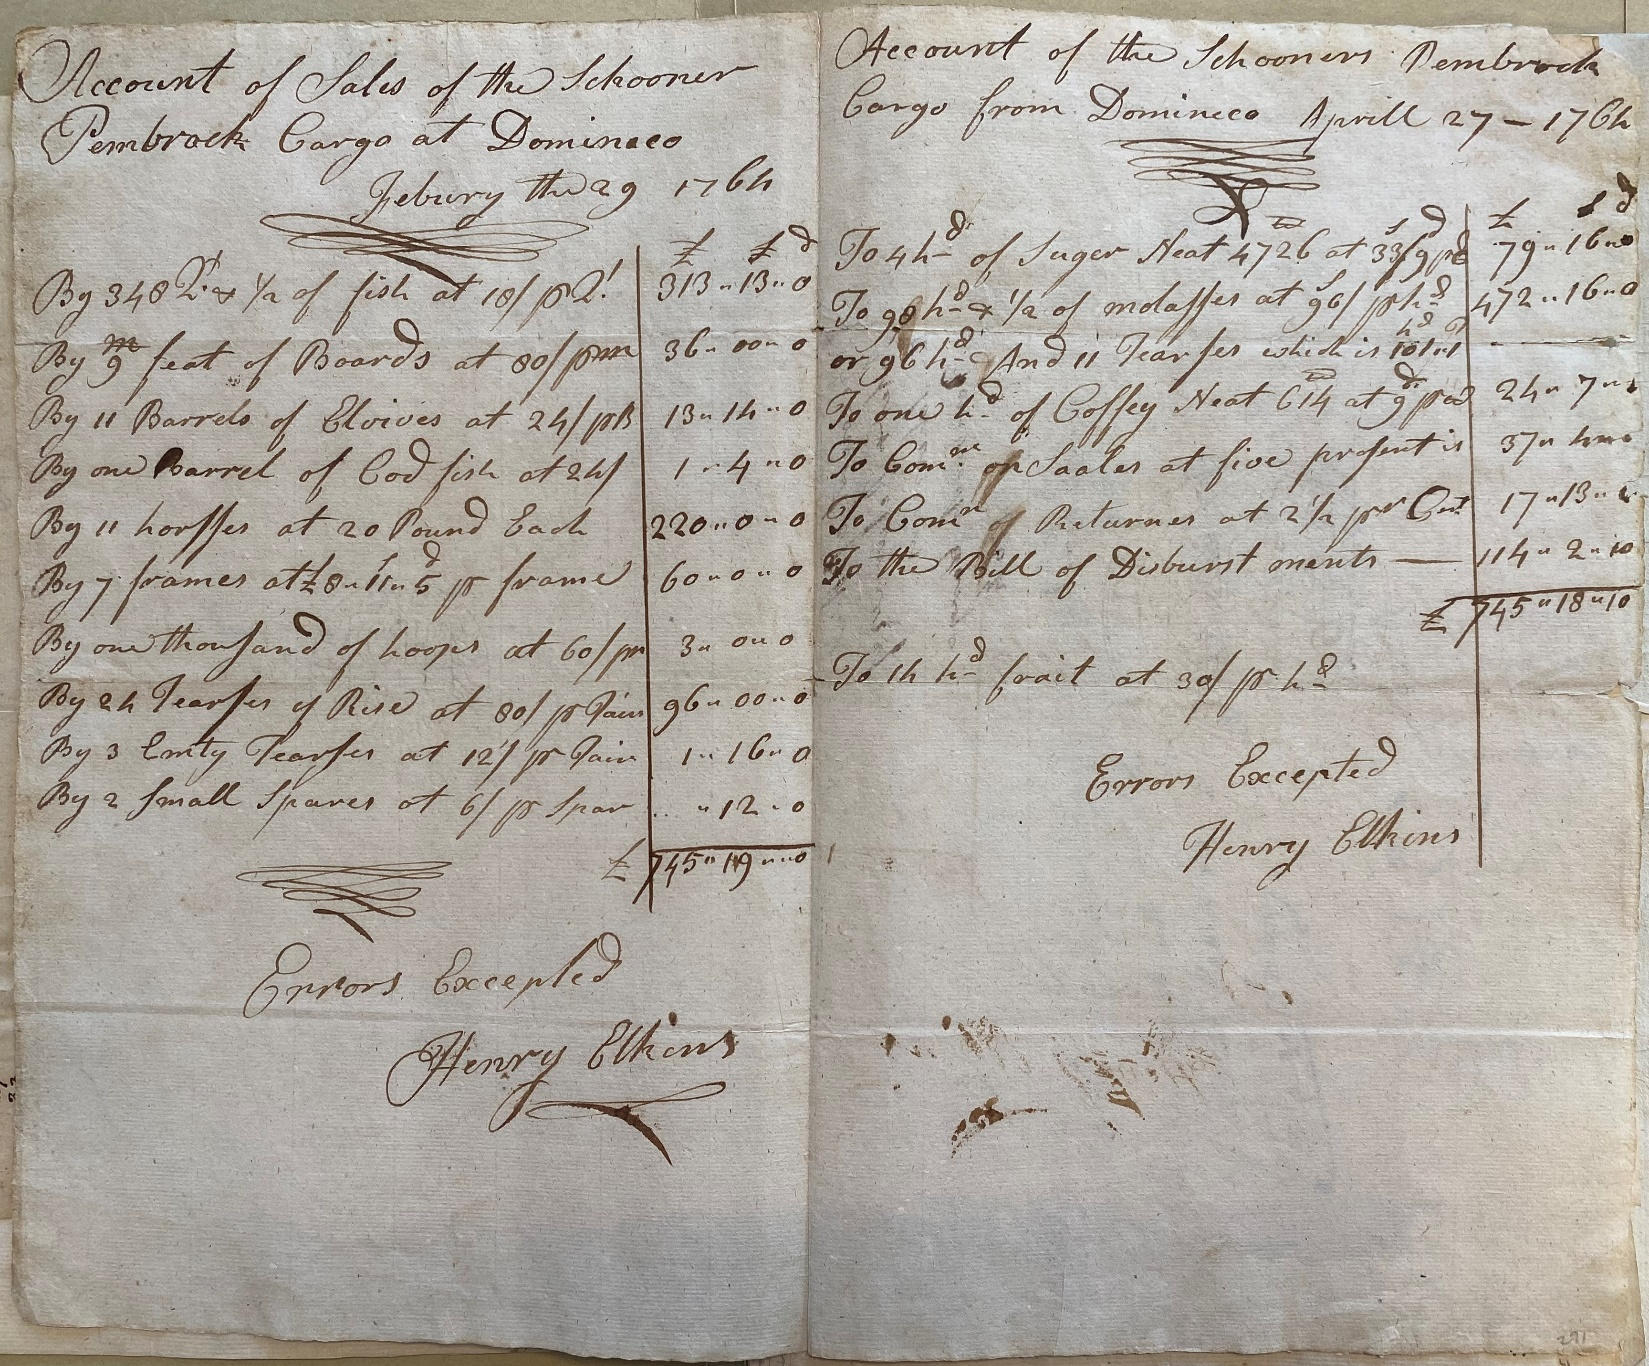 Account of Sales of the Schooner
Pembrock Cargo at Domineco
Febury the 29 1764
£ s d
By 348 Qt & 1/2 of fish at 18/ p Qt 313 " 13 " 0
By 9 m feat of Boards at 80/ p m 36 " 00 " 0
By 11 Barrels of Elvives at 24/ p B 13 " 14 " 0
By one Barrel of Cod fish at 24/ 1 " 4 " 0
By 11 horsses at 20 Pound Each 220 " 0 " 0
By 7 frames at £8 " 11 " 5 p frame 60 " 0 " 0
By one thousand of hoops at 60/ p m 3 " 0 " 0
By 24 Tearses of Rise at 80/ p 96 " 00 " 0
By 3 Emty Tearses at 12/ p 1 " 16 " 0
By 2 Small Spares at 6/ p Spar " 12 " 0
£ 745 " 19 " 0
Errors Excepted
Henry Elkins
Account of the Schooners Pembrock
Cargo from Domineco Aprill 27 - 1764
£ s d
To 4 hd of Suger Neat 4726 at 33/9 p 79 " 16 " 0
To 98 hd & 1/2 of molasses at 96/ p hd 472 " 16 " 0
or 96 hd And 11 Tearses which is 101 " 1
To one hd of Coffey Neat 614 at 9d p 24 " 7 "
To Comn on Saales at five prosent is 37 " 4
To Comn of Returnes at 2 1/2 pr Cent 17 " 13 "
To the Bill of Disburst ments — 114 " 2 " 10
£ 745 " 18 " 10
To 14 hd frait at 30/ p hd
Errors Excepted
Henry Elkins